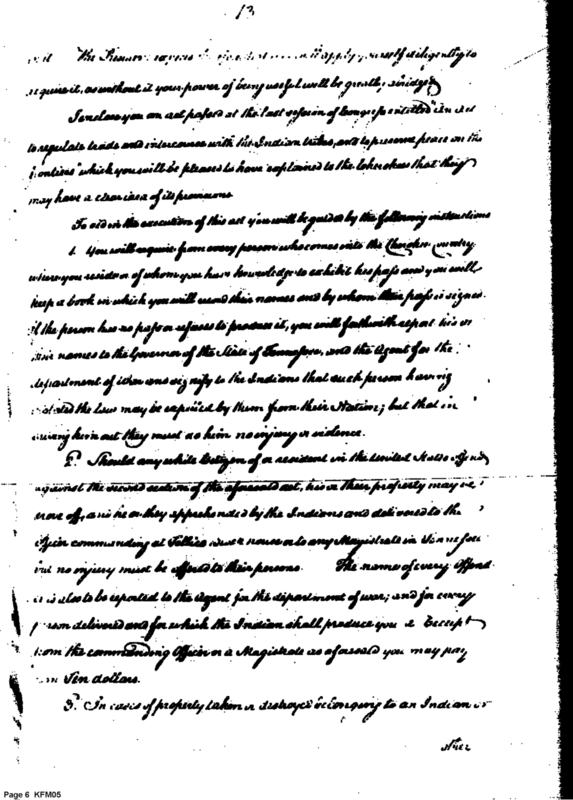 13
apply yourself diligently to
acquire it, as without it your power of being useful will be greatly abridg
I enclose you an act passed at the last session of Congress entitled "An Act
to regulate trade and intercourse with the Indian tribes, and to preserve peace on the
frontiers" which you will be pleased to have explained to the Cherokees that they
may have a clear idea of its provisions
To aid in the execution of this act you will be guided by the following instructions
1. You will require from every person who comes into the Cherokee Country
where you reside or of whom you have knowledge to exhibit his pass and you will
keep a book in which you will record their names and by whom their pass is signed.
If the person has no pass or refuses to produce it, you will forthwith report his or
their names to the Governor of the State of Tennessee, and the Agent for the
department of War and signify to the Indians that such person having
violated the law may be expelled by them from their Nation; but that in
driving him out they must do him no injury or violence.
2d. Should any white Citizen of or resident in the United States offend
against the second section of the aforesaid act, his or their property may be
drove off, and he or they apprehended by the Indians and delivered to the
Officer commanding at Tellico Block house or to any Magistrate in Tennessee
but no injury must be offered to their persons. The name of every Offend
is also to be reported to the Agent for the department of war; and for every
person delivered and for which the Indian shall produce you a Receipt
from the commanding Officer or a Magistrate as aforesaid you may pay
Ten dollars.
3d. In cases of property taken or destroyed belonging to an Indian or
Page 6 KFM05